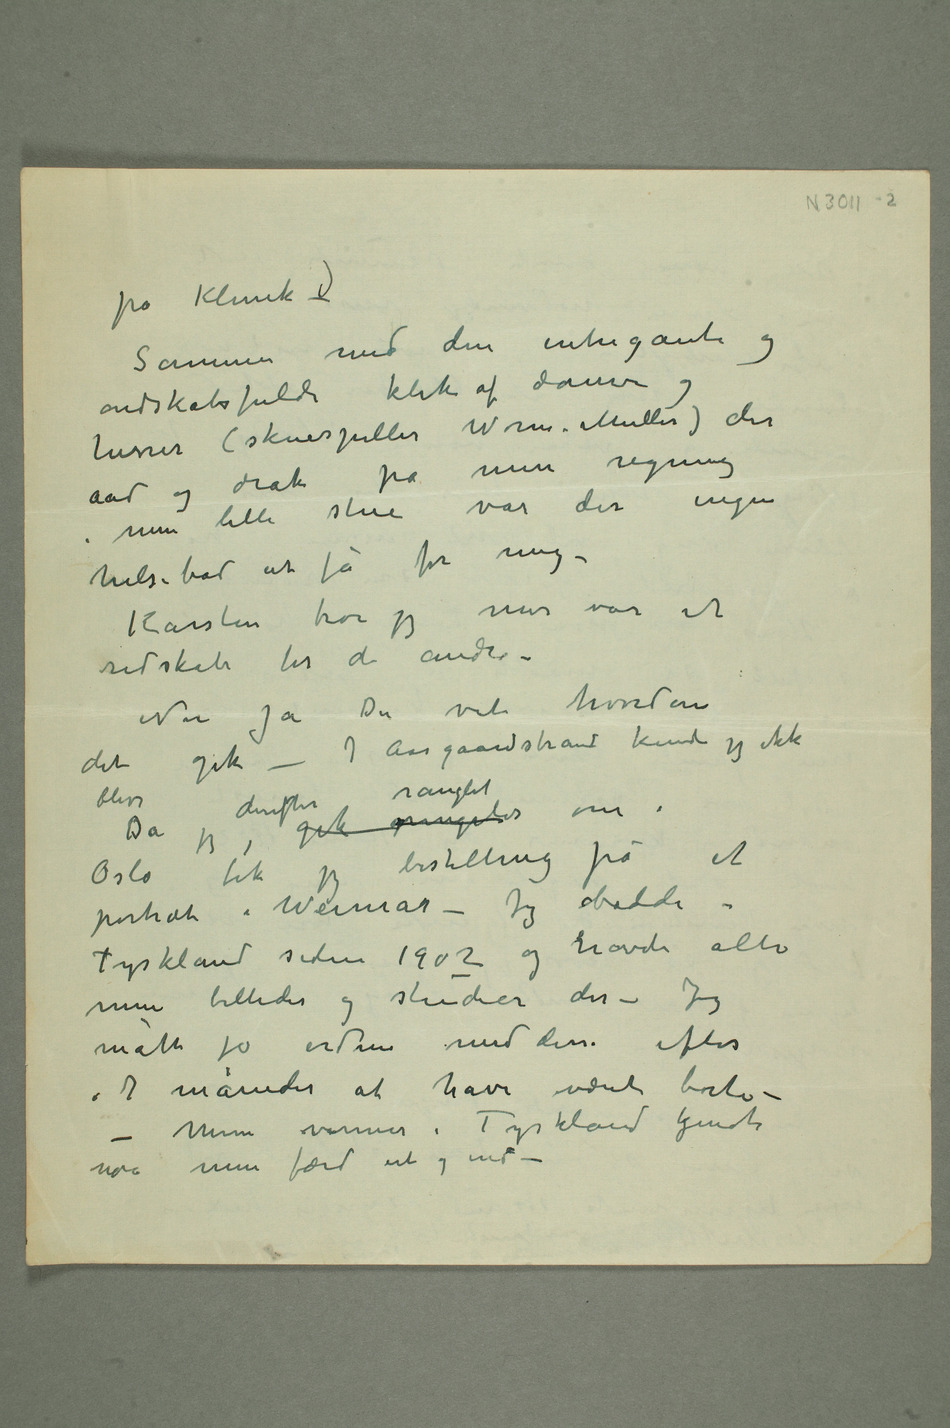 N 3011 -2
på Klinik)
Sammen med den intrigante og
ondskabsfulde klik af damer og
herrer (skuespiller Worm. Müller) der
aad og drak på min regning
i min lille stue var der ingen
helsebod at få for mig –
Karsten tror jeg mer var et
redskab for de andre –
Nu ja Du vet hvordan
det gik – I Aasgaardstrand kunde jeg ikke
blive
derefter ranglet
Da jeg, gik om i
Oslo fik jeg bestilling på et
portræt i Weimar – Jeg bodde i
Tyskland siden 1902 og havde alle
mine billeder og studier der – Jeg
måtte jo ordne med disse efter
i 7 måneder at have været borte –
– Mine venner i Tyskland kjendte
nok min færd ut og ind –